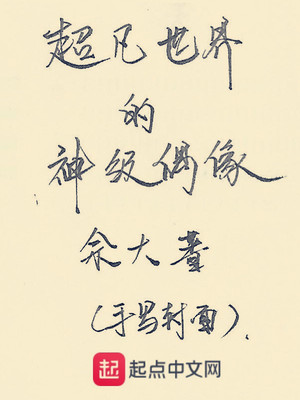 超凡世界
的
神级偶像
大
(手写封面).
起 起点中文网